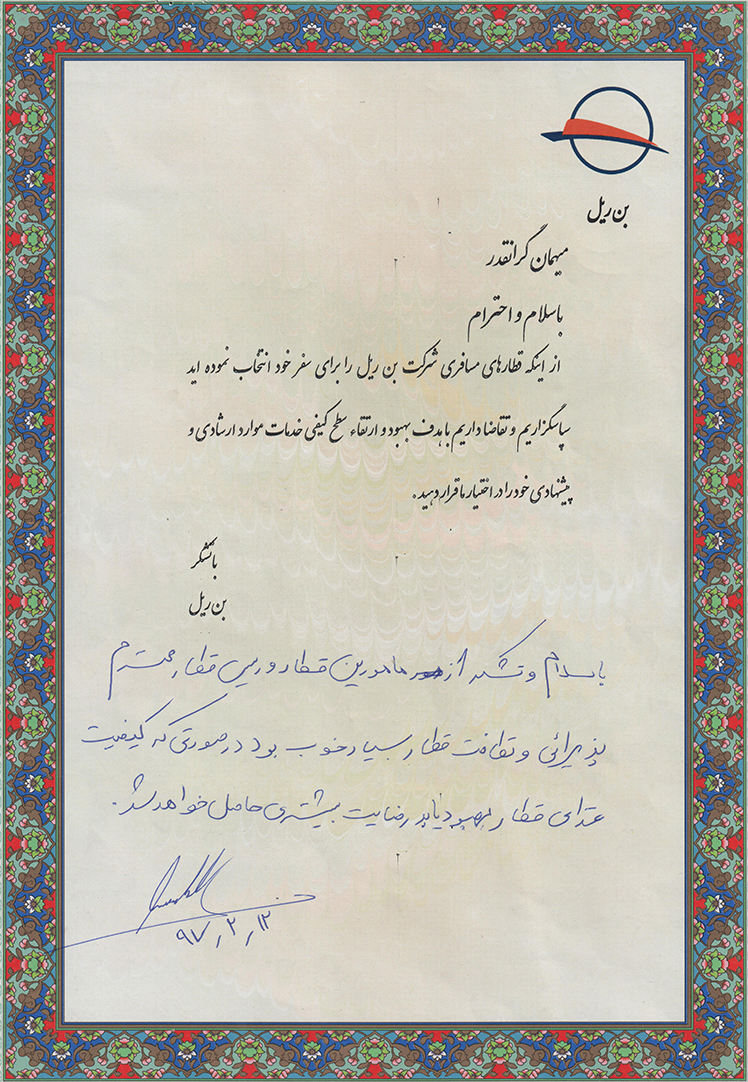 بن ریل
میهمان گرانقدر
باسلام و احترام
از اینکه قطارهای مسافری شرکت بن ریل را برای سفر خود انتخاب نموده اید
سپاسگزاریم و تقاضا داریم باهدف بهبود و ارتقاء سطح کیفی خدمات موارد ارشادی و
پیشنهادی خود را در اختیار ما قرار دهید.
باتشکر
بن ریل
باسلام و تشکر از مامورین قطار و رییس قطار محترم
پذیرائی و نظافت قطار بسیار خوب بود در صورتی که کیفیت
غذای قطار بهبود یابد رضایت بیشتری حاصل خواهد شد.
۹۷٫۲٫۱۲